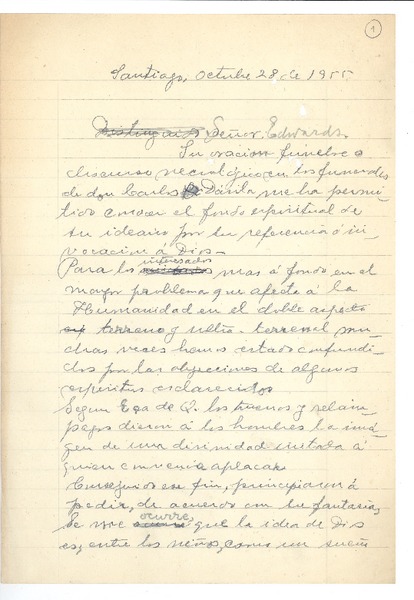 1
Santiago, Octubre 28 de 1955
Distinguido Señor Edwards.
Su oracion fúnebre o
discurso necrológico en los funerales
de don Carlos Dávila me ha permi-
tido conocer el fondo espiritual de
su ideario por la referencia ó in-
vocacion á Dios.
Para los interesados mas á fondo en el
mayor problema que afecta á la
Humanidad en el doble aspecto
terreno y ultra-terrenal mu-
chas veces hemos estado confundi-
dos por las objeciones de algunos
espíritus esclarecidos
Segun Eça de Q. los truenos y relám-
pagos dieron á los hombres la imá-
gen de una divinidad irritada á
quien convenia aplacar
Conseguido ese fin, principiaron á
pedir, de acuerdo con su fantasia,
Se me ocurre, que la idea de Dios
es, entre los niños, como un sueño